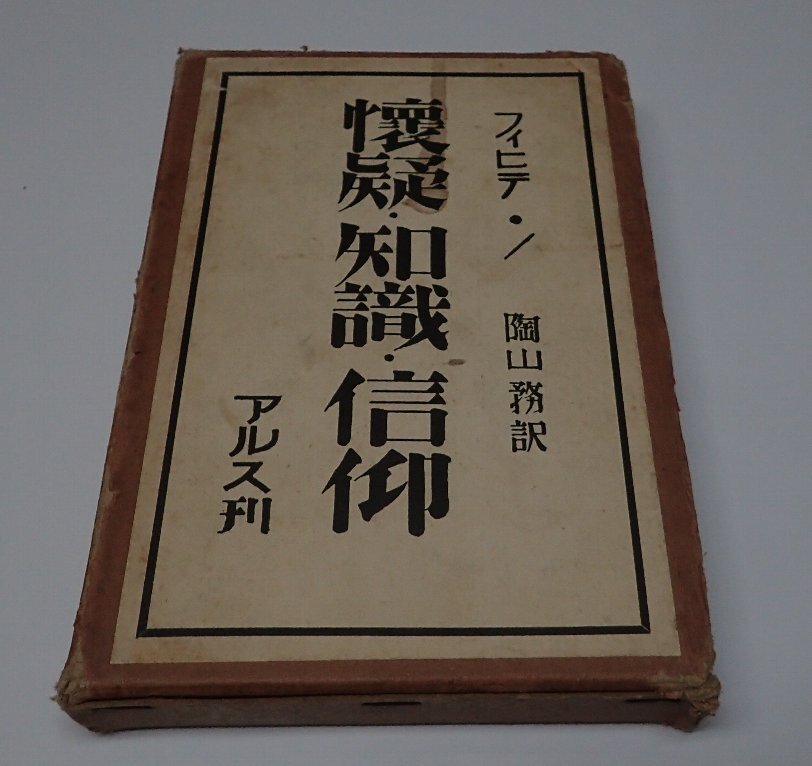 フィヒテ・ノ 陶山務訳
懷疑・知識・信仰
アルス刊